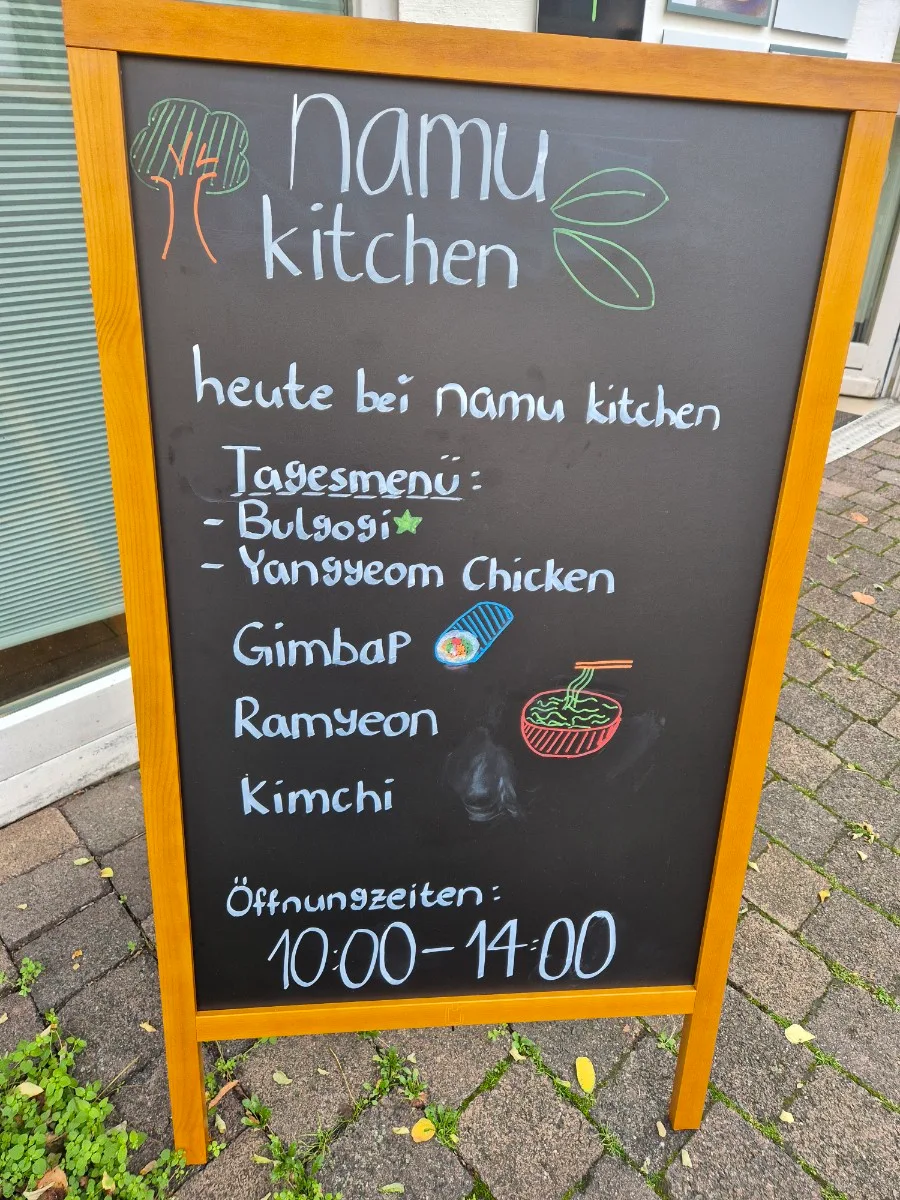 namu
kitchen
heute bei namu kitchen
Tagesmenü:
- Bulgogi
- Yangyeom Chicken
Gimbap
Ramyeon
Kimchi
Öffnungzeiten:
10:00-14:00